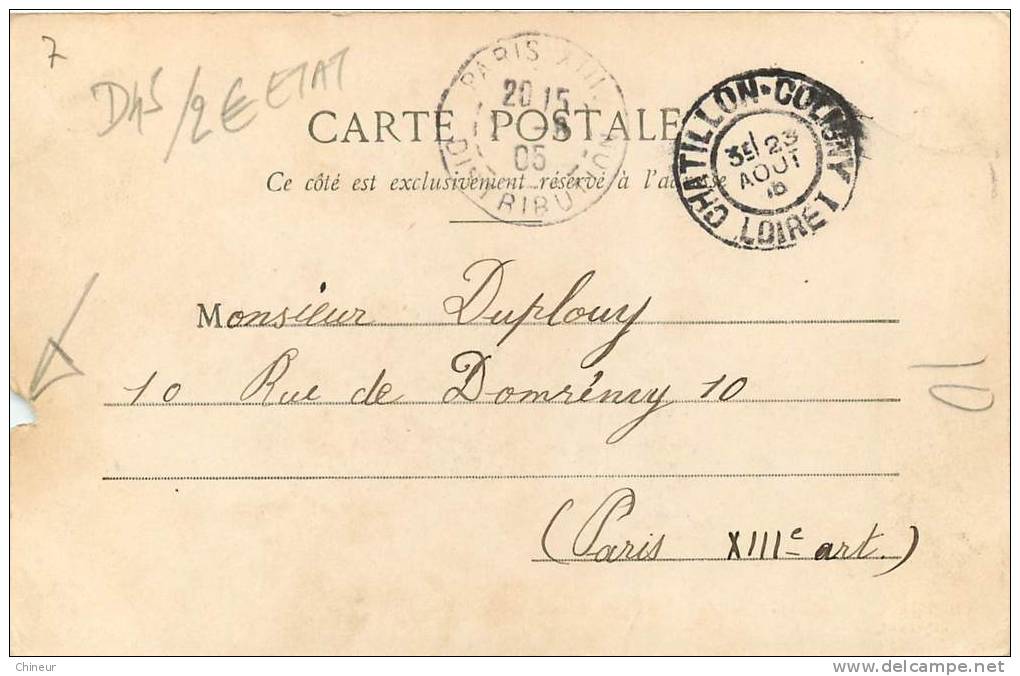 7
D45/2€ ETAT
PARIS XIII
20 15
-8
05
DISTRIBUTION
CHATILLON-COLIGNY
3E 23
AOUT
LOIRET
CARTE POSTALE
Ce côté est exclusivement réservé à l'adresse
Monsieur Duplouy
10 Rue de Domrémy 10
(Paris XIIIe art.)
10
Chineur
www.delcampe.net